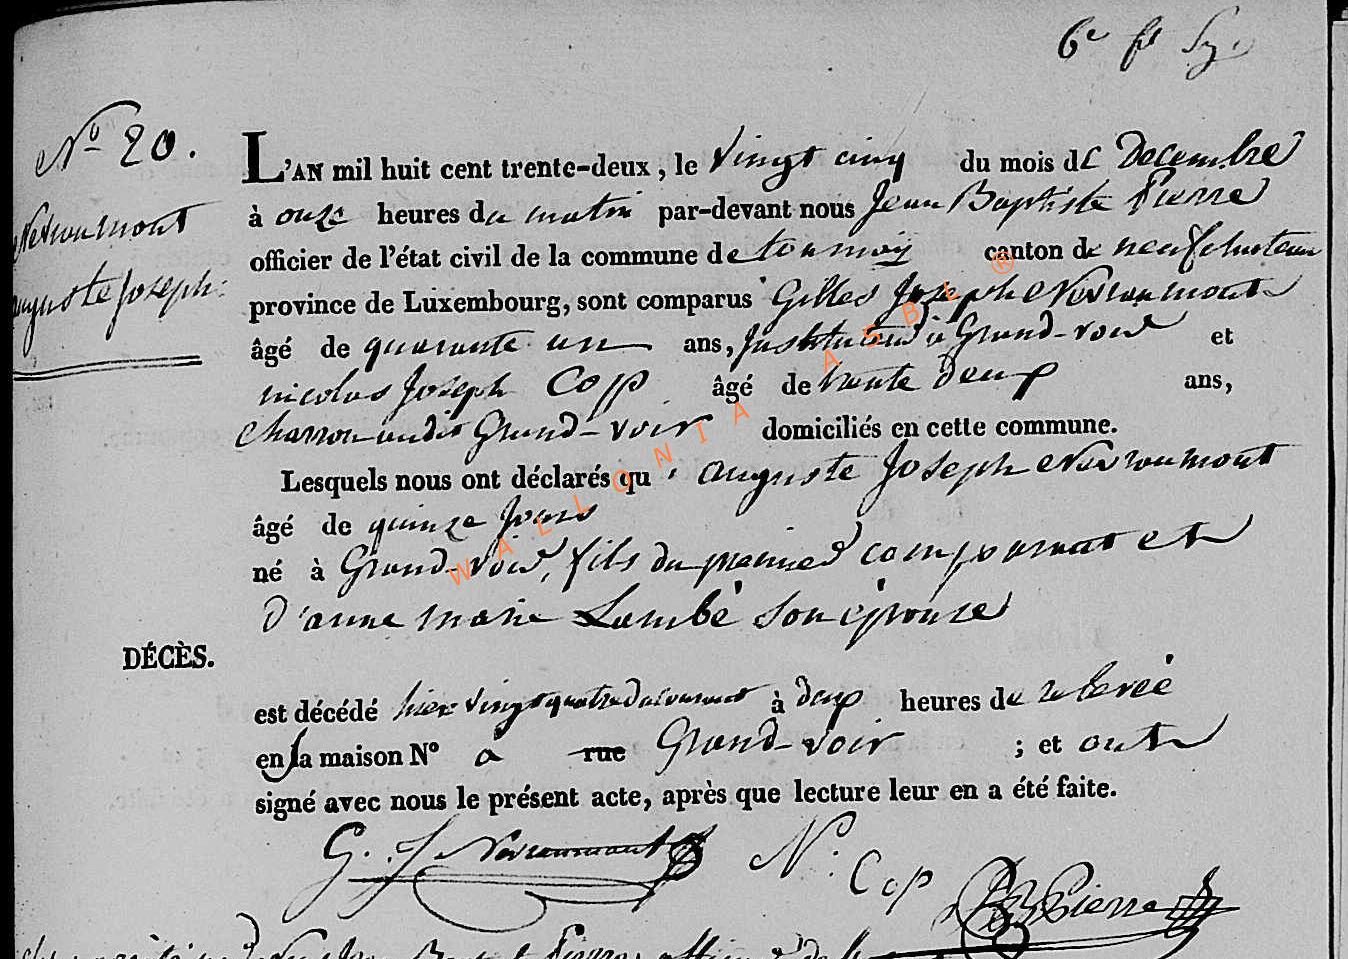 6e
No 20.
L'AN mil huit cent trente-deux, le vingt cinq du mois de Decembre
à onze heures du matin par-devant nous Jean Baptiste Pierre
Nevraumont
officier de l'état civil de la commune de tournay canton de neufchateau
auguste Joseph.
province de Luxembourg, sont comparus Gilles Joseph Nevraumont
âgé de quarante un ans, Instituteur à Grand-voir et
nicolas Joseph Cop âgé de trente deux ans,
charron audit Grand-voir domiciliés en cette commune.
Lesquels nous ont déclarés qu'auguste Joseph Nevraumont
âgé de quinze Jours
né à Grand-voir, fils du premier comparant et
d'anne marie Lambé son épouse
DÉCÈS.
est décédé hier vingt quatre du courant à deux heures de relevée
en la maison No à rue Grand-voir ; et ont
signé avec nous le présent acte, après que lecture leur en a été faite.
G. J. Nevraumont N. Cop JB Pierre
WALLONIA ASBL ®